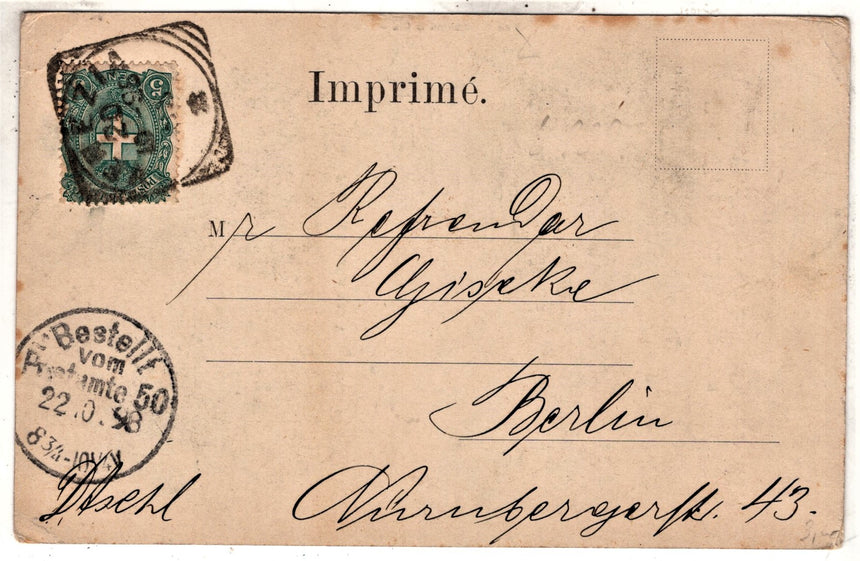 Imprimé.
Mr Refrendar
Giseke
Berlin
Dtschl Nürnbergerstr. 43.
Bestellt
vom
Postamte 50
22.10.98
8¾-10V4